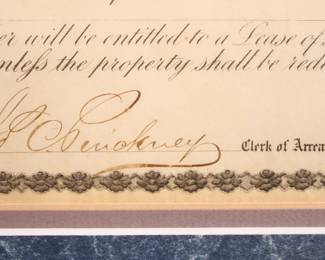 er will be entitled to a Lease of
unless the property shall be red
Pinckney
Clerk of Arrea